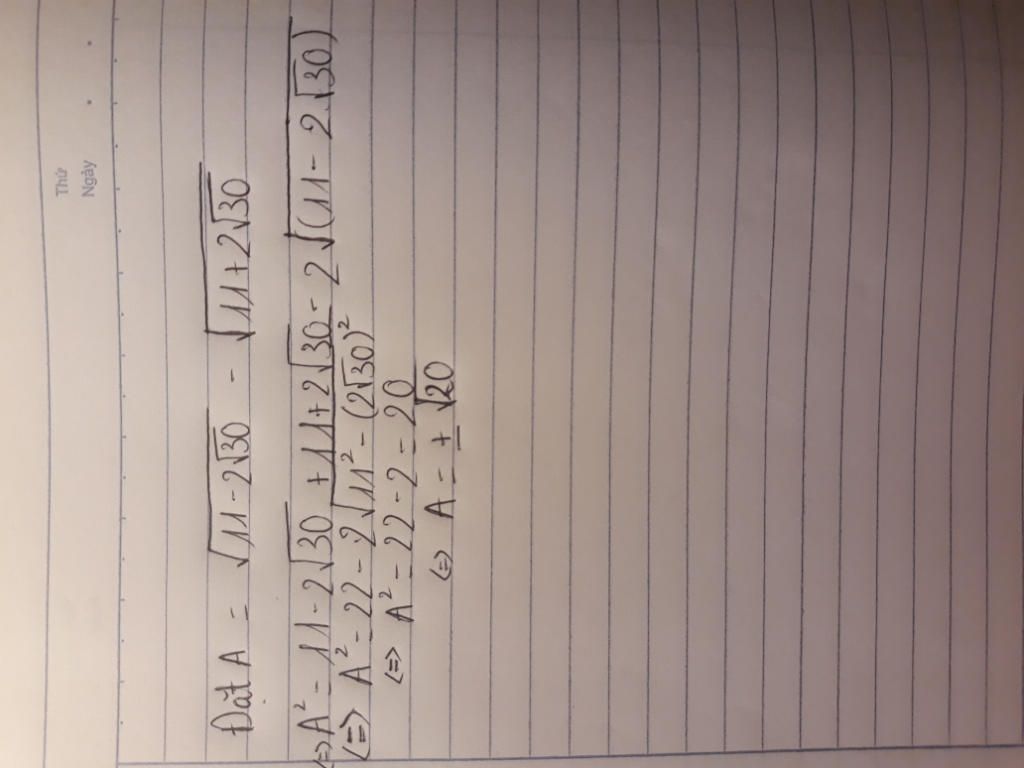 Thứ
Ngày
Đặt A = √(11 - 2√30) - √(11 + 2√30)
(=> A² = 11 - 2√30 + 11 + 2√30 - 2√((11 - 2√30)
(=> A² = 22 - 2√(11² - (2√30)²)
(=> A² = 22 - 2 = 20
(=> A = ±√20